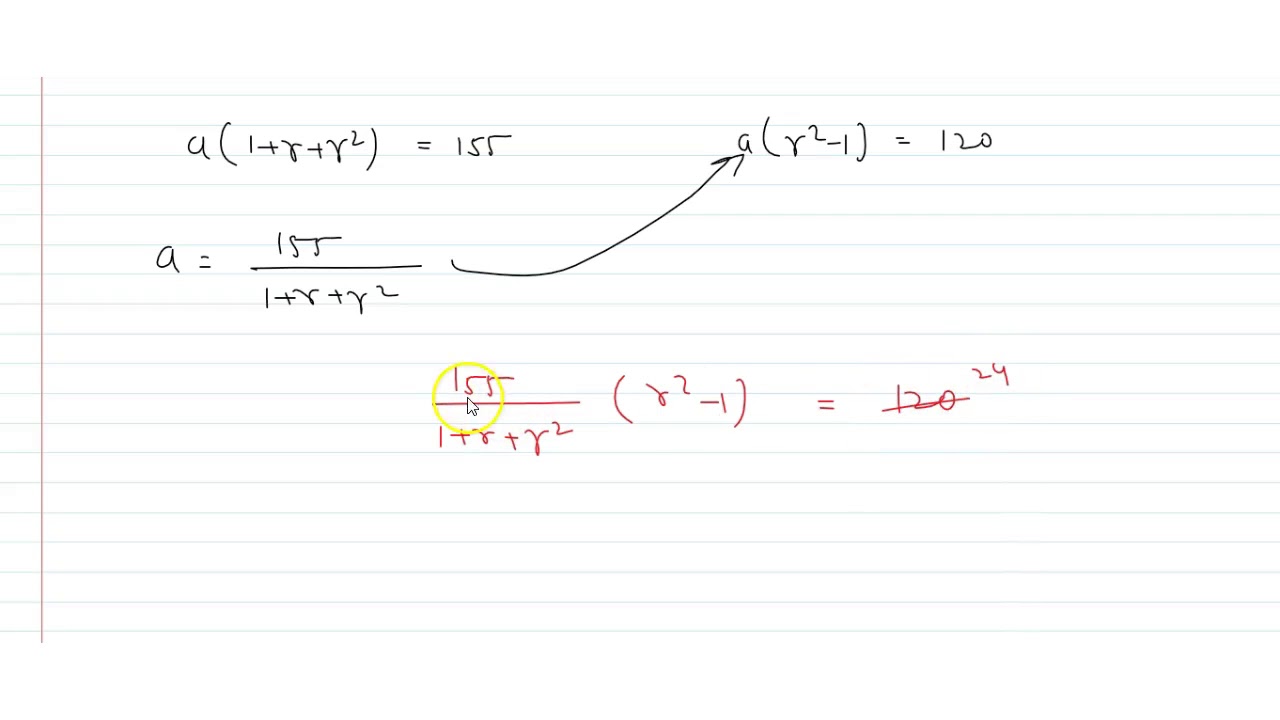 a(1+r+r²) = 155 a(r²-1) = 120
a = 155/(1+r+r²)
155/(1+r+r²) (r²-1) = 120 24